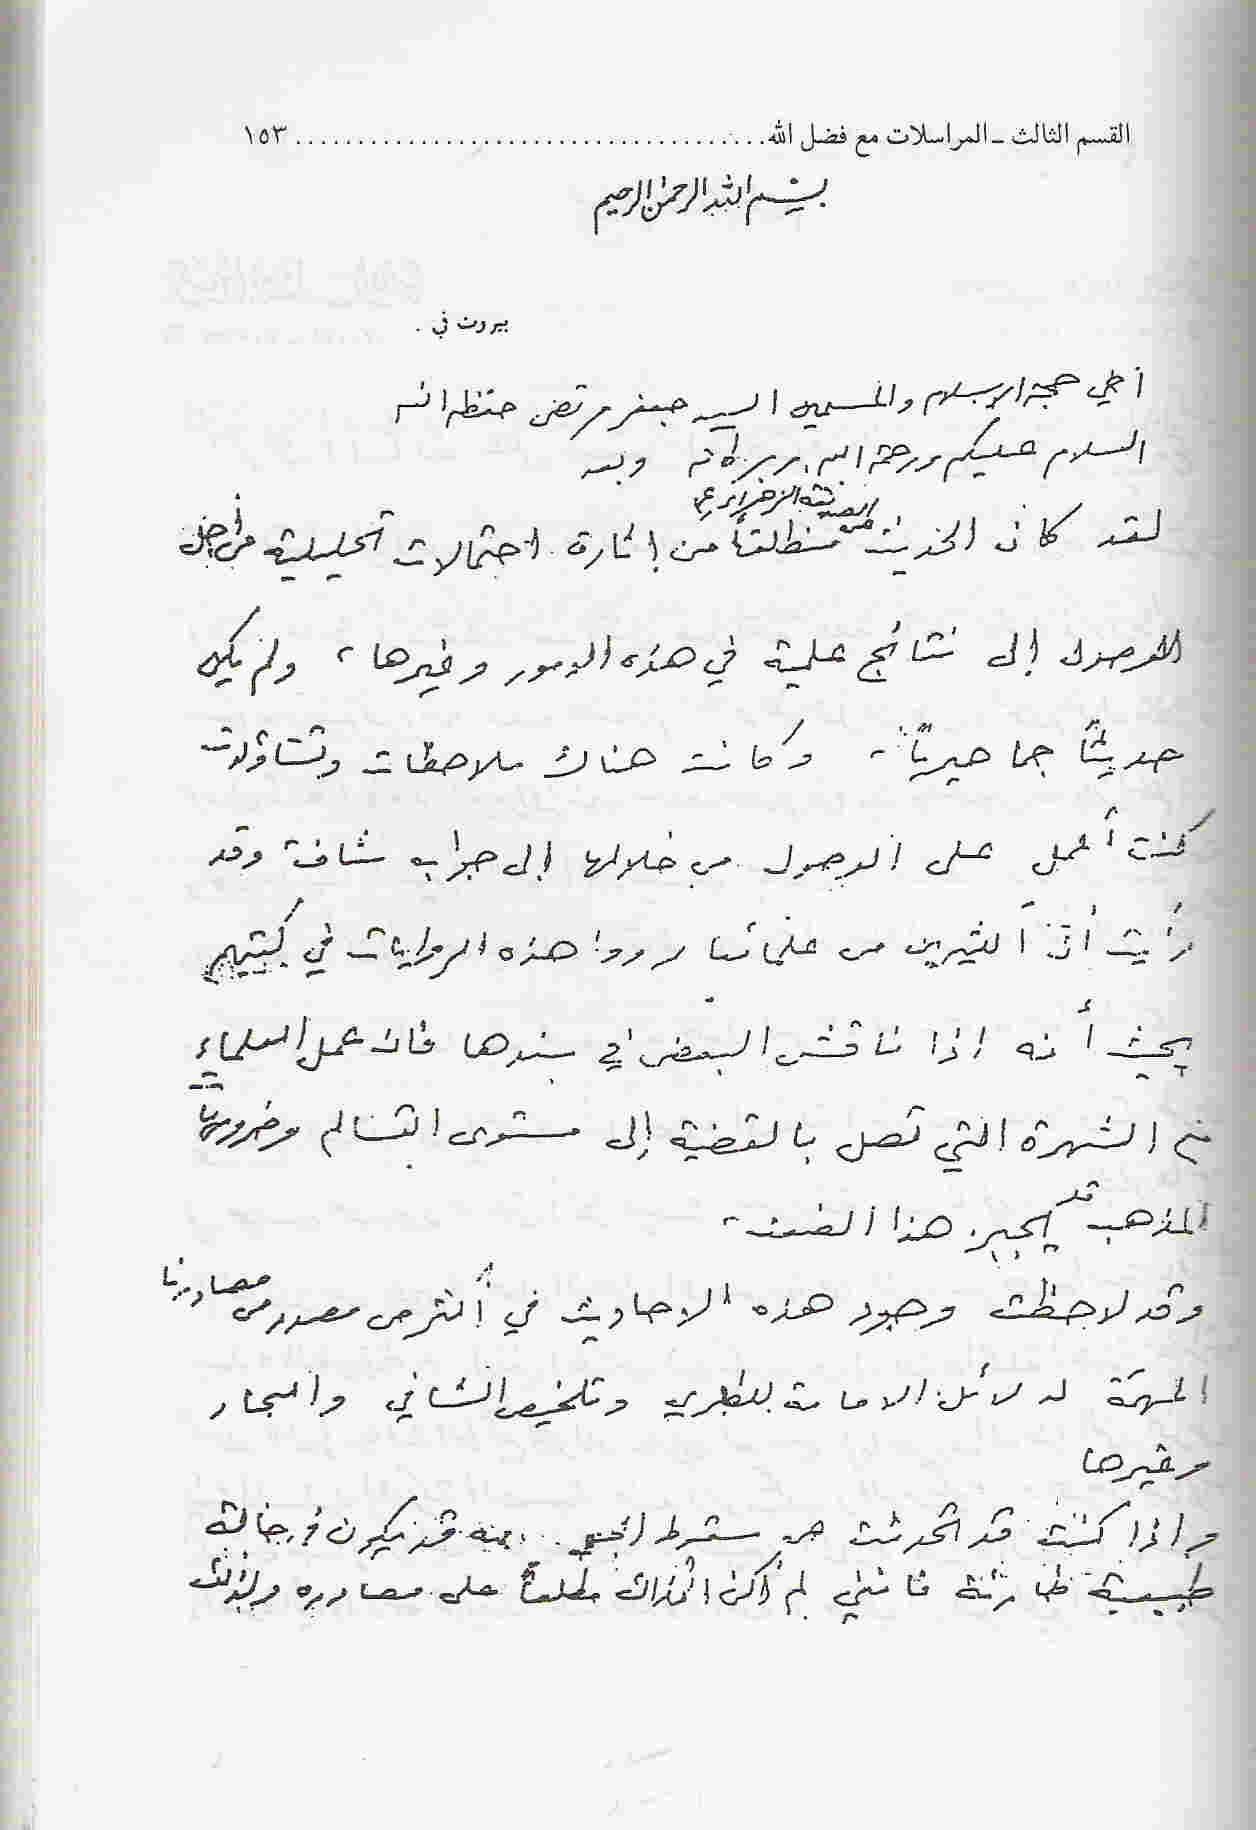 القسم الثالث ـ المراسلات مع فضل الله...................................... ١٥٣
بسم الله الرحمن الرحيم
بيروت في .
أخي حجة الإسلام والمسلمين السيد جعفر مرتضى حفظه الله
السلام عليكم ورحمة الله وبركاته وبعد
عن الصديقة الزهراء (ع)
لقد كان الحديث منطلقاً من إثارة احتمالات تحليلية من أجل
الوصول إلى نتائج علمية في هذه الامور وغيرها، ولم يكن
حديثاً جماهيرياً، وكانت هناك ملاحظات وتساؤلات
كنت أعمل على الوصول من خلالها إلى جواب شاف، وقد
رأيت أن الكثيرين من علمائنا رووا هذه الروايات في كتبهم
بحيث أنه اذا ناقش البعض في سندها فان عمل العلماء
مع الشهرة التي تصل بالقضية إلى مستوى التسالم وضروريات
المذهب قد يجبر هذا الضعف،
وقد لاحظت وجود هذه الاحاديث في أكثر من مصدر من مصادرنا
المهمة كدلائل الامامة للطبري وتلخيص الشافي والبحار
وغيرها
واذا كنت قد تحدثت عن سقوط الجنين بأنه قد يكون في حالة
طبيعية طارئة فانني لم أكن آنذاك مطلعاً على مصادره ولذلك